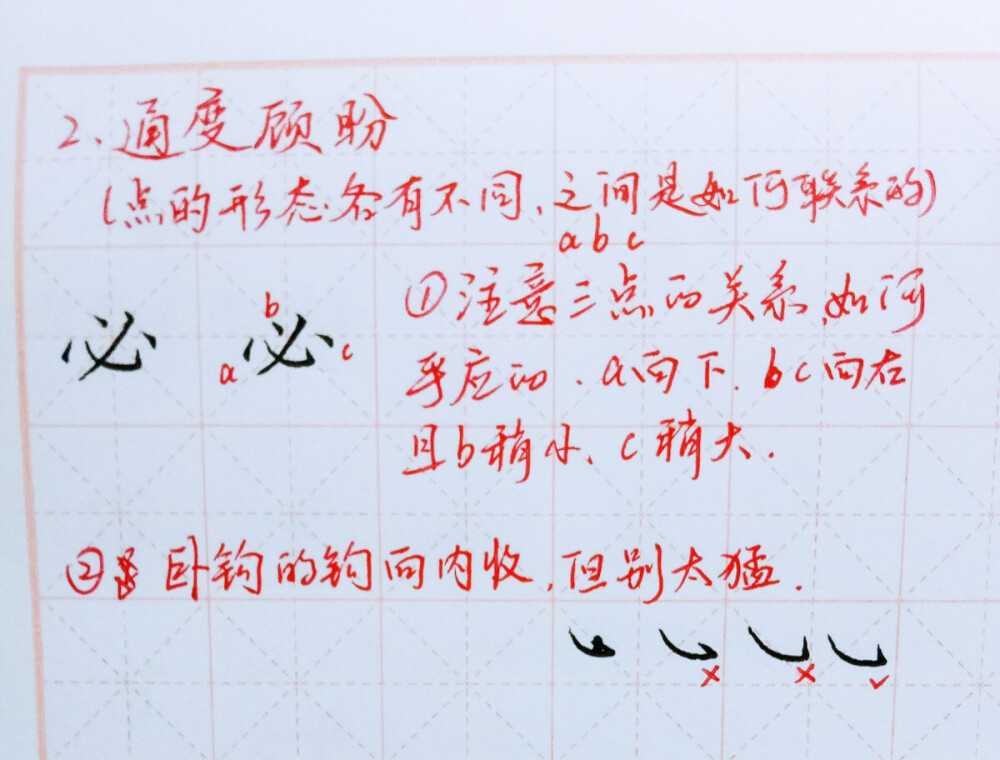 2、通度顾盼
(点的形态各有不同、之间是如何联系的)
a b c
①注意三点的关系、如何
必 必 a b c
呼应的. a向下. b c 向右
且b稍小、c稍大.
② 卧钩的钩向内收,但别太猛.
× × ✓